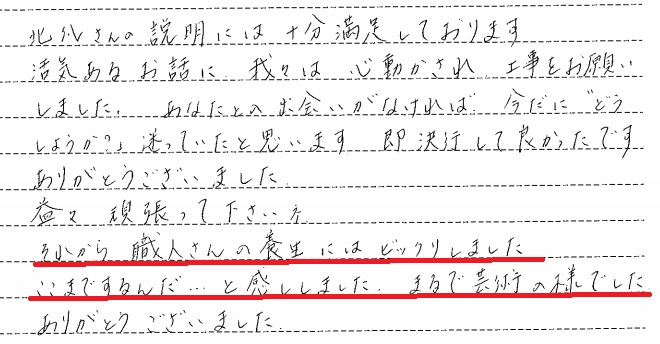 北糺さんの説明には十分満足しております
活気あるお話に、我々は心動かされ、工事をお願い
しました。あなたとの出会いがなければ、今だに"どう
しようか?"迷っていたと思います 即決行して良かったです
ありがとうございました。
益々頑張って下さい。
それから職人さんの養生にはビックリしました
ここまでするんだ…と感じしました。まるで芸術の様でした。
ありがとうございました。